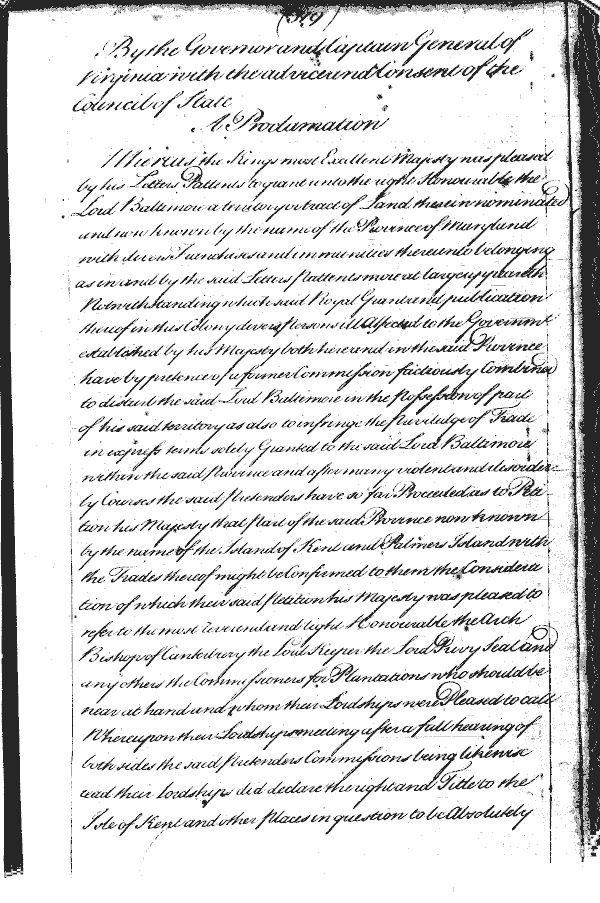 (319)
By the Governor and Captain General of
Virginia with the advice and Consent of the
Council of State
A Proclamation
Whereas the Kings most Excellent Majesty was pleased
by his Letters Pattents to grant unto the right Honourable the
Lord Baltimore a territory or tract of Land therein nominated
and now known by the name of the Province of Maryland
with divers Franchises and immunities thereunto belonging
as in and by the said Letters Pattents more at large appeareth
Notwithstanding which said Royal Grant and publication
thereof in this Colony divers persons ill Affected to the Governmt
established by his Majesty both here and in the said Province
have by pretence of a former Commission factiously Combined
to disturb the said Lord Baltimore in the Possession of part
of his said territory as also to infringe the Priviledge of Trade
in express terms solely Granted to the said Lord Baltimore
within the said Province and after many violent and disorder-
ly Courses the said Pretenders have so far Proceeded as to Peti
tion his Majesty that Part of the said Province now known
by the name of the Island of Kent and Palmers Island with
the Trades thereof might be Confirmed to them the Considera
tion of which their said Petition his Majesty was pleased to
refer to the most reverend and Right Honourable the Arch
Bishop of Canterbury the Lord Keeper the Lord Privy Seal and
any others the Commissioners for Plantations who should be
near at hand and whom their Lordships were Pleased to call
Whereupon their Lordships meeting after a full hearing of
both sides the said Pretenders Commissions being likewise
read their Lordships did declare the right and Title to the
Isle of Kent and other places in question to be Absolutely